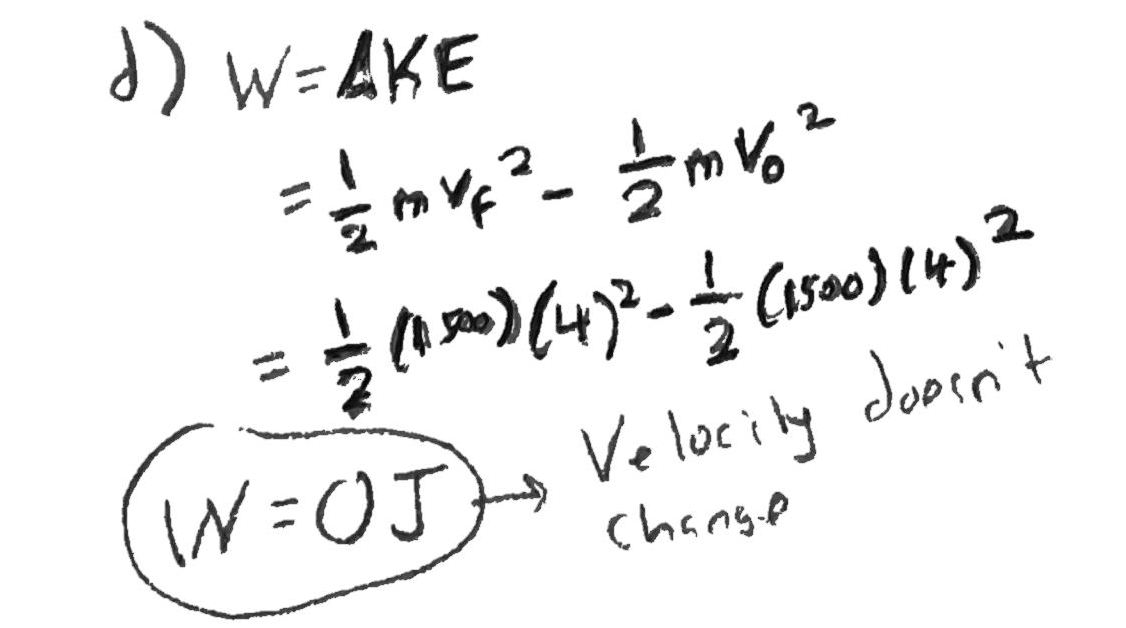 d) W = ΔKE
= 1/2 m Vf² - 1/2 m V₀²
= 1/2 (1500)(4)² - 1/2 (1500)(4)²
W = 0J → Velocity doesn't
change